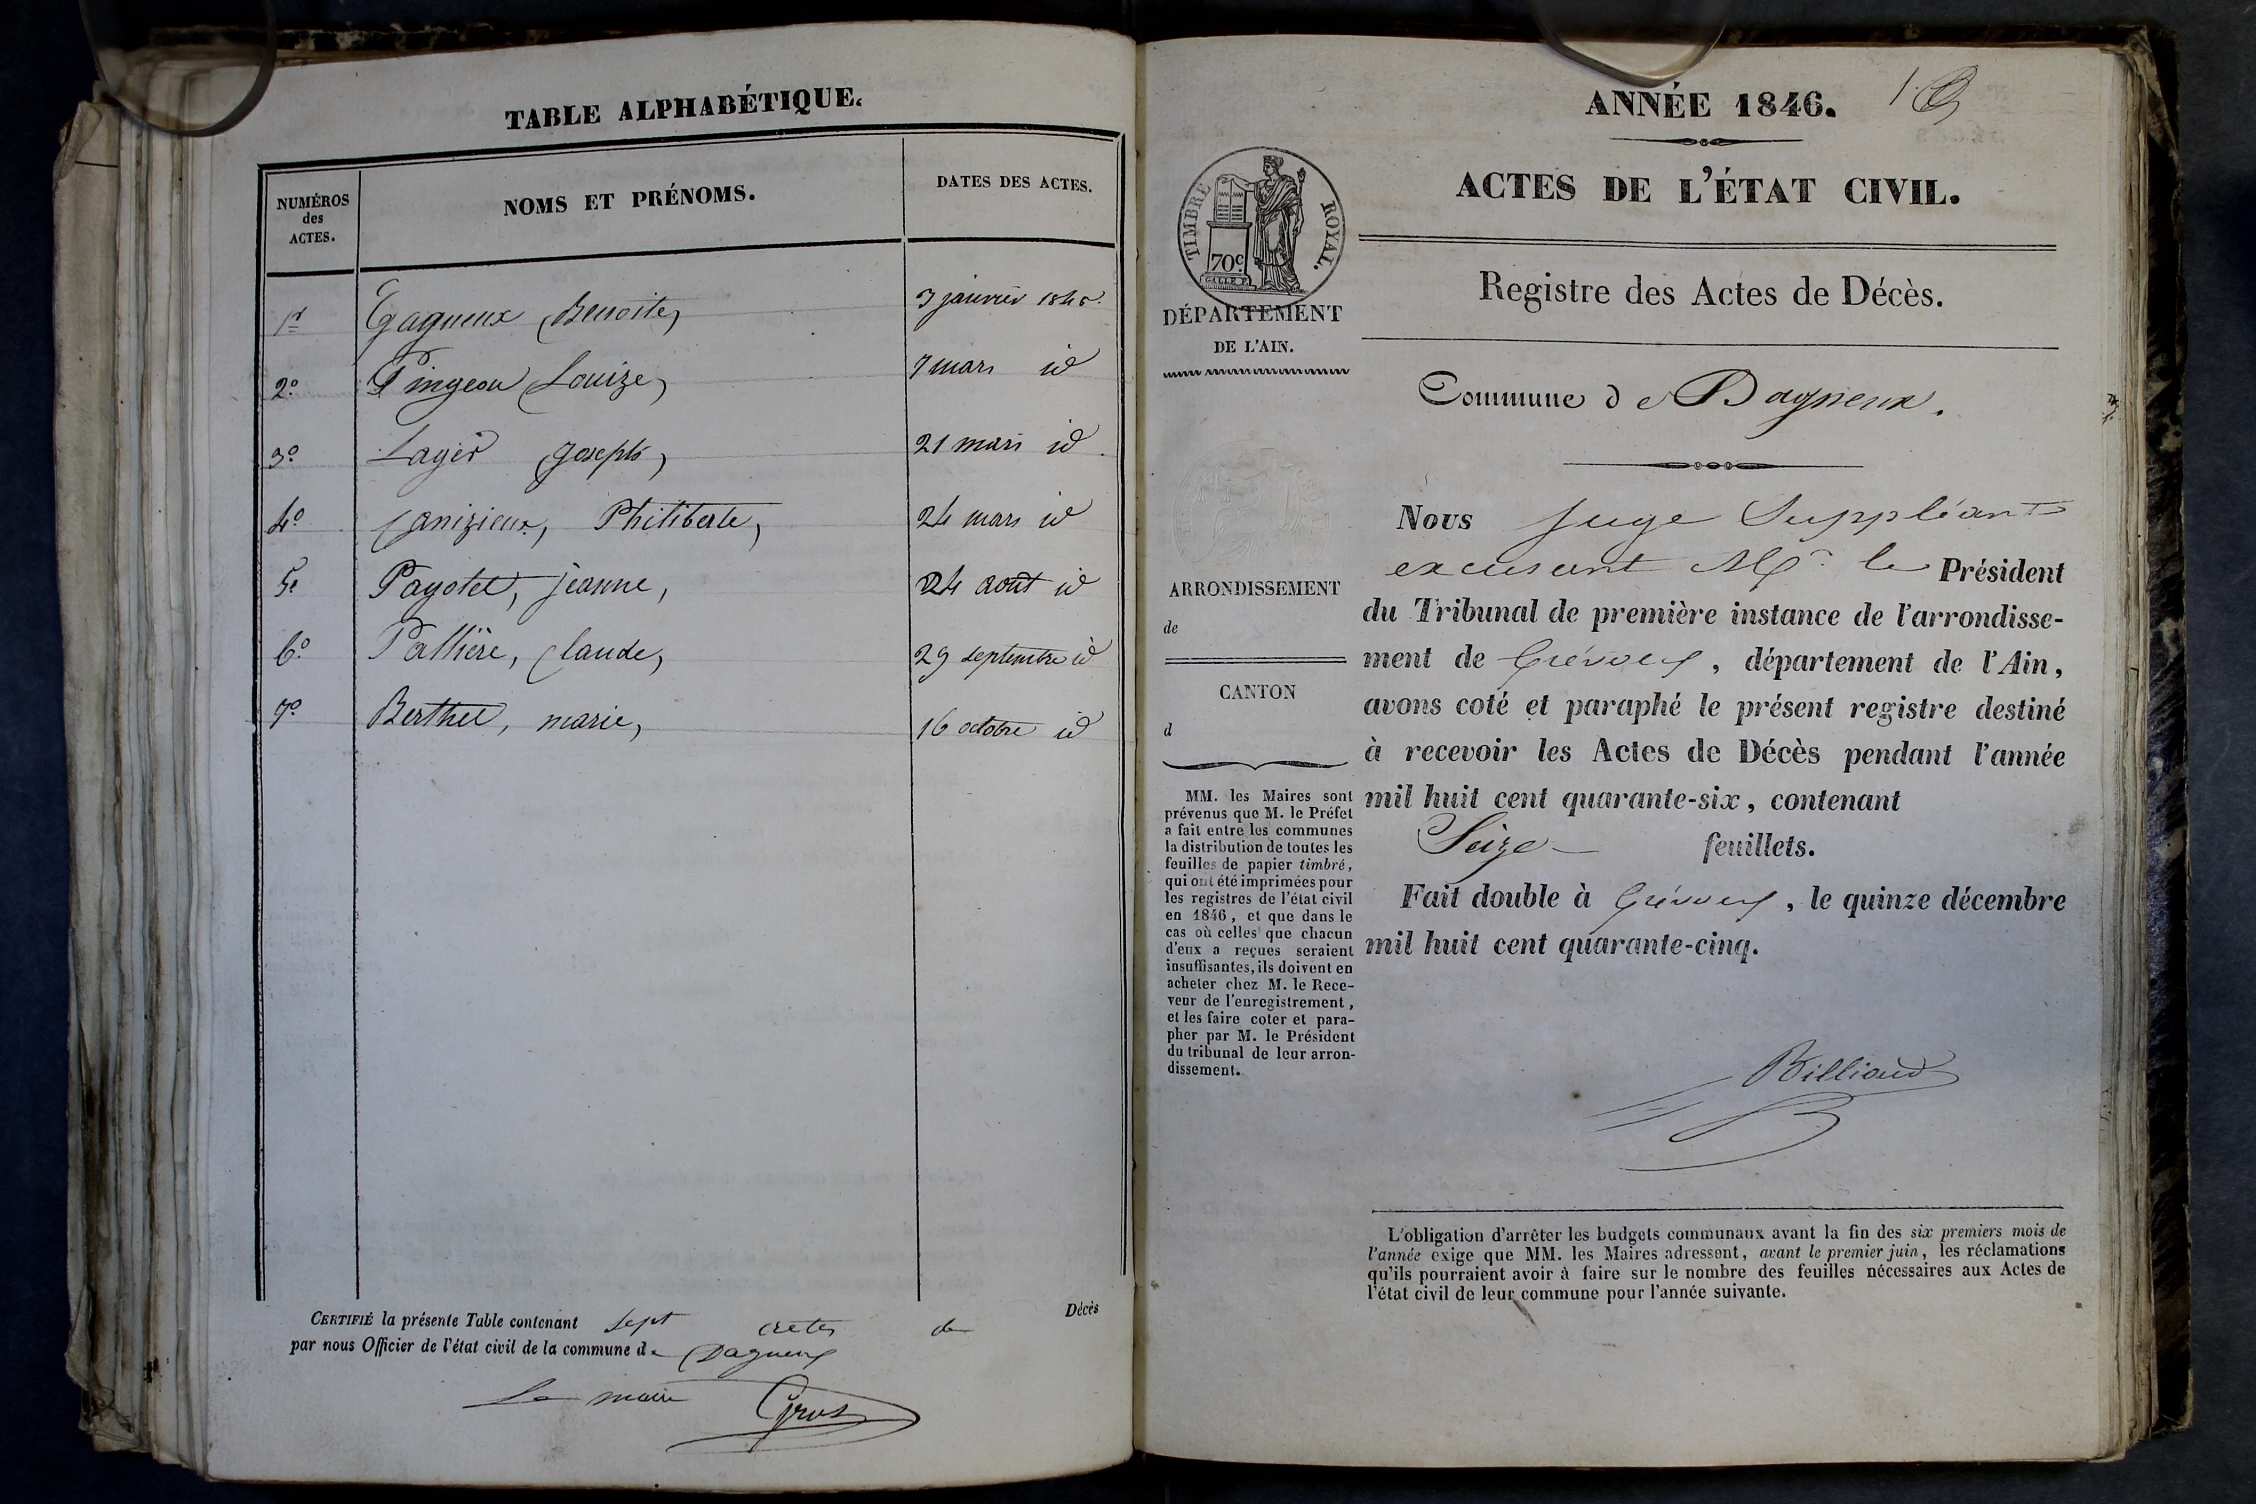 TABLE ALPHABÉTIQUE.
NUMÉROS
des
ACTES.
NOMS ET PRÉNOMS.
DATES DES ACTES.
1er Gagneux Benoite, 3 janvier 1845.
2º Pingeon Louize, 7 mars id
3º Layer Joseph, 21 mars id
4º Canizieux, Philiberte, 24 mars id
5º Payotet, jeanne, 24 août id
6º Pallière, Claude, 29 septembre id
7º Berthet, marie, 16 octobre id
CERTIFIÉ la présente Table contenant sept actes de Décès
par nous Officier de l'état civil de la commune de Dagneux
Le maire Gros
ANNÉE 1846.
1
ACTES DE L'ÉTAT CIVIL.
TIMBRE ROYAL.
70c.
DÉPARTEMENT
DE L'AIN.
Registre des Actes de Décès.
Commune de Dagneux.
ARRONDISSEMENT
de
CANTON
d
MM. les Maires sont
prévenus que M. le Préfet
a fait entre les communes
la distribution de toutes les
feuilles de papier timbré,
qui ont été imprimées pour
les registres de l'état civil
en 1846, et que dans le
cas où celles que chacun
d'eux a reçues seraient
insuffisantes, ils doivent en
acheter chez M. le Rece-
veur de l'enregistrement,
et les faire coter et para-
pher par M. le Président
du tribunal de leur arron-
dissement.
Nous Juge Suppléant
excusant Mr. le Président
du Tribunal de première instance de l'arrondisse-
ment de Trévoux, département de l'Ain,
avons coté et paraphé le présent registre destiné
à recevoir les Actes de Décès pendant l'année
mil huit cent quarante-six, contenant
Seize feuillets.
Fait double à Trévoux, le quinze décembre
mil huit cent quarante-cinq.
Billioud
L'obligation d'arrêter les budgets communaux avant la fin des six premiers mois de
l'année exige que MM. les Maires adressent, avant le premier juin, les réclamations
qu'ils pourraient avoir à faire sur le nombre des feuilles nécessaires aux Actes de
l'état civil de leur commune pour l'année suivante.